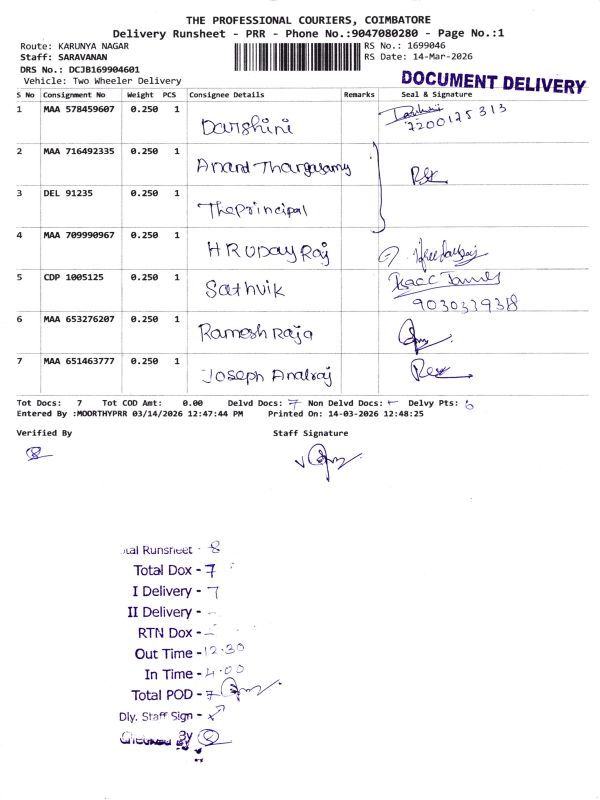 THE PROFESSIONAL COURIERS, COIMBATORE
Delivery Runsheet - PRR - Phone No.:9047080280 - Page No.:1
Route: KARUNYA NAGAR RS No.: 1699046
Staff: SARAVANAN RS Date: 14-Mar-2026
DRS No.: DCJB169904601
Vehicle: Two Wheeler Delivery
DOCUMENT DELIVERY
S No Consignment No Weight PCS Consignee Details Remarks Seal & Signature
1 MAA 578459607 0.250 1 Darshini
7200125313
2 MAA 716492335 0.250 1 Anand Thangasamy
3 DEL 91235 0.250 1 The principal
4 MAA 709990967 0.250 1 HRUDAY Raj
5 CDP 1005125 0.250 1 Sathvik Isacc James
6 MAA 653276207 0.250 1 Ramesh Raja
7 MAA 651463777 0.250 1 Joseph Andraj
Tot Docs: 7 Tot COD Amt: 0.00 Delvd Docs: 7 Non Delvd Docs: - Delvy Pts: 6
Entered By :MOORTHYPRR 03/14/2026 12:47:44 PM Printed On: 14-03-2026 12:48:25
Verified By Staff Signature
Runsheet - 8
Total Dox - 7
I Delivery - 7
II Delivery -
RTN Dox -
Out Time - 12.30
In Time - 4.00
Total POD - 7
Dly. Staff Sign -
Checked By